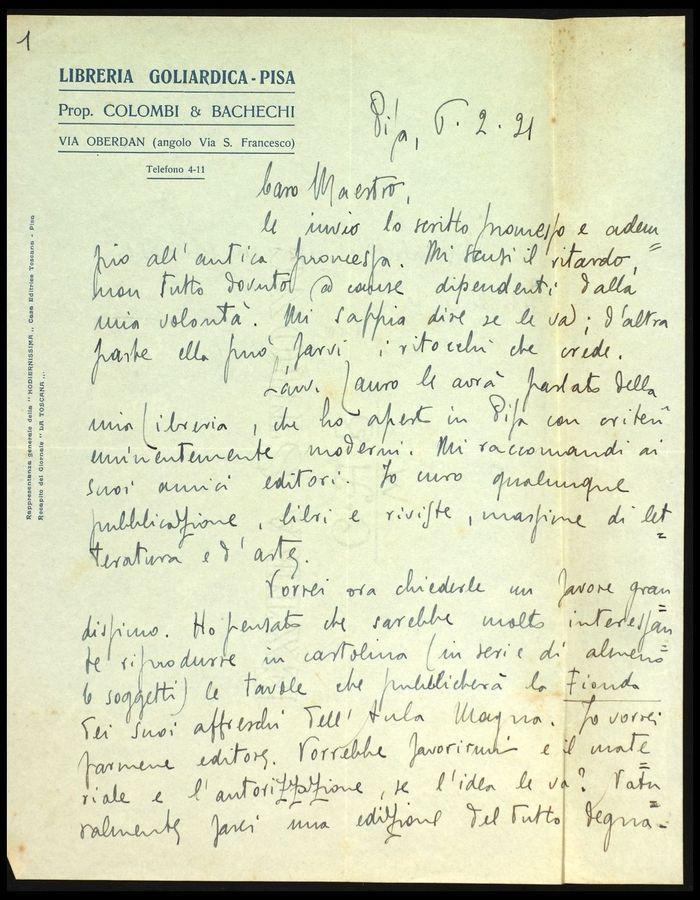 1
LIBRERIA GOLIARDICA - PISA
Prop. COLOMBI & BACHECHI
VIA OBERDAN (angolo Via S. Francesco)
Telefono 4-11
Rappresentanza generale della "MODERNISSIMA„ Casa Editrice Toscana - Pisa
Recapito del Giornale "LA TOSCANA„
Pisa, 6 . 2 . 21
Caro Maestro,
le invio lo scritto promesso e adem=
pio all'antica promessa. Mi scusi il ritardo,
non tutto dovuto a cause dipendenti dalla
mia volontà. Mi sappia dire se le va; d'altra
parte ella può farvi i ritocchi che crede.
L'avv. Lauro le avrà parlato della
mia libreria, che ho aperto in Pisa con criterii
eminentemente moderni. Mi raccomandi ai
suoi amici editori. Io curo qualunque
pubblicazione, libri e riviste, massime di let=
teratura e d'arte.
Vorrei ora chiederle un favore gran=
dissimo. Ho pensato che sarebbe molto interessan=
te riprodurre in cartolina (in serie di almeno
6 soggetti) le tavole che pubblicherà la Fionda
dei suoi affreschi dell'Aula Magna. Io vorrei
farmene editore. Vorrebbe favorirmi e il mate=
riale e l'autorizzazione, se l'idea le va? Natu=
ralmente farei una edizione del tutto degna-